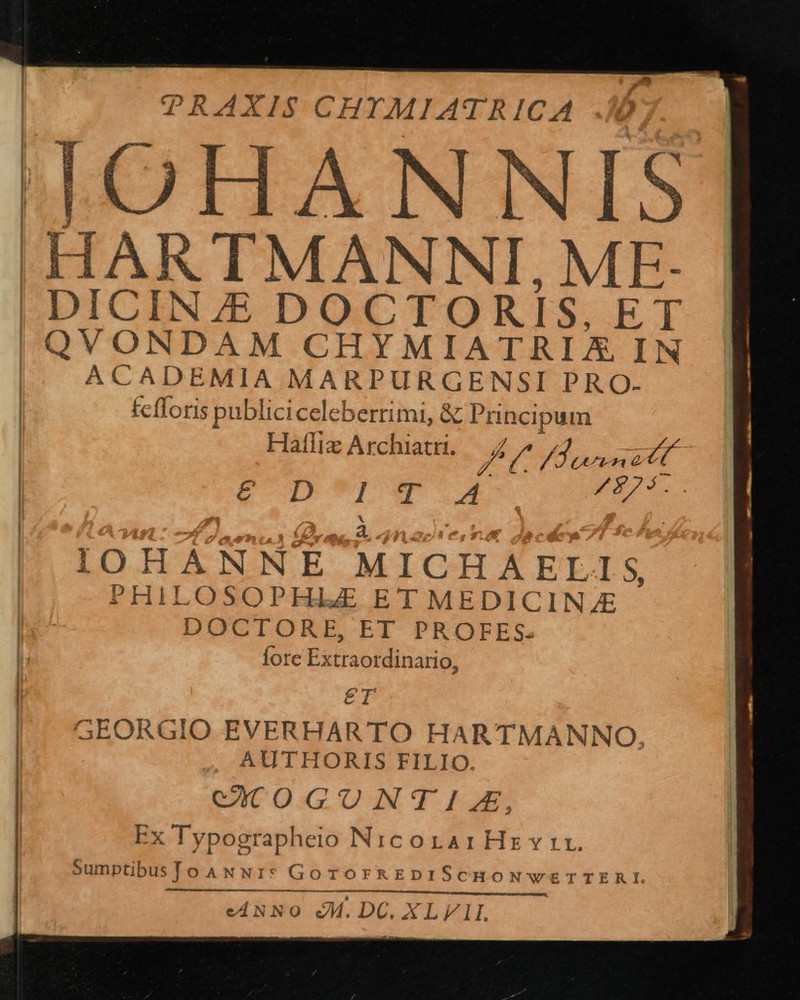 PRAXIS CHYMIATRICA 167.
JOHANNIS
HARTMANNI, ME-
DICINÆ DOCTORIS, ET
QVONDAM CHYMIATRIÆ IN
ACADEMIA MARPURGENSI PRO-
feſſoris publici celeberrimi, & Principum
Haſſiæ Archiatri.
Burnett
EDITA
1875.
à
IOHANNE MICHAELIS,
PHILOSOPHIÆ ET MEDICINÆ
DOCTORE, ET PROFES-
ſore Extraordinario,
ET
GEORGIO EVERHARTO HARTMANNO,
AUTHORIS FILIO.
MOGUNTIÆ,
Ex Typographeio NICOLAI HEYLL.
Sumptibus JOANNIS GOTOFREDI SCHONWETTERI.
ANNO M. DC. XLVII.